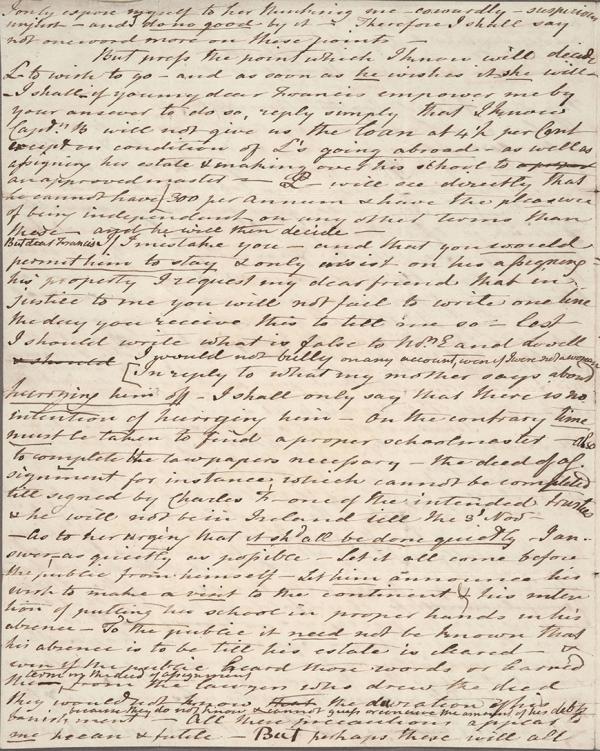 I only expose myself to her thinking me - cowardly - suspicious
unjust - and do no good by it - Therefore I shall say
not one word more on these points -
But press the point which I know will decide
L - to wish to go - and as soon as he wishes it she will -
- I shall if you my dear Francis empower me by
your answer to do so, reply simply that I know
Capt.n B will not give us the loan at 4 1/2 per Cent
except on condition of L's going abroad - as well as
assigning his estate & making over his school to
an approved master - L - will see directly that
he cannot have 300 per annum & have the pleasure
of being independent on any other terms than
these - and he will then decide -
But dear Francis if I mistake you - and that you would
permit him to stay & only insist on his assigning
his property I request my dear friend that in
justice to me you will not fail to write one line
the day you receive this to tell me so - lest
I should write what is false to Mrs E and do well
& should I would not bully on any account, even if I were not a woman
In reply to what my mother says about
hurrying him off - I shall only say that there is no
intention of hurrying him - On the contrary time
must be taken to find a proper schoolmaster - also
to complete the law papers necessary - the deed of as
signment for instance, which cannot be completed
till signed by Charles F, one of the intended trustees
& he will not be in Ireland till the 3d Nov -
- As to her urging that it shall be done quietly I an-
swer as quietly as possible - Let it all come before
the public from himself - Let him announce his
wish to make a visit to the continent & his inten
tion of putting his school in proper hands in his
absence - To the public it need not be known that
his absence is to be till his estate is cleared -
even if the public heard those words or learned
terming the deed of assignment
them from the lawyers who drew the deed
they would not know that the duration of his
because they do not know & cannot guess or conceive the amount of his debts
banishment - All these precautions appear to
me mean & futile - But perhaps these will all